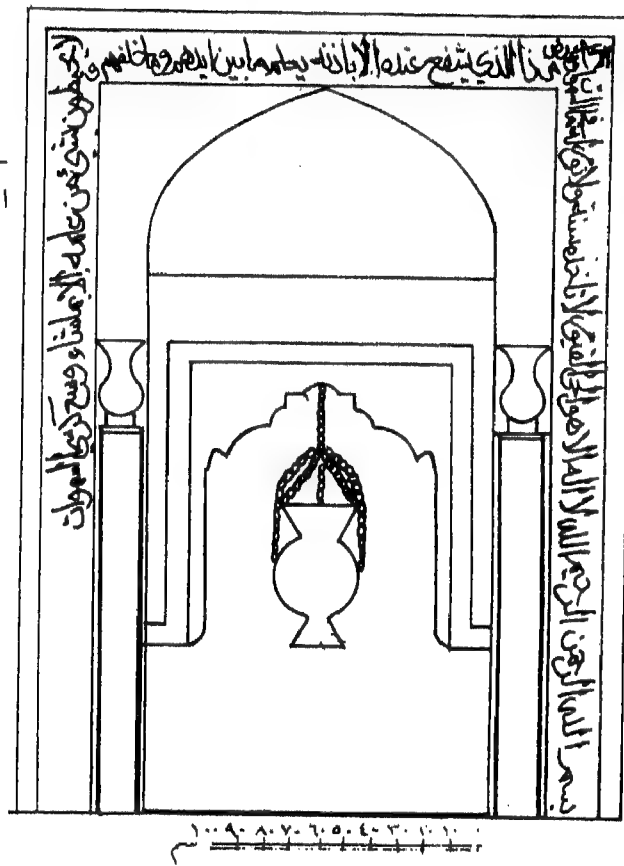 بسم الله الرحمن الرحيم الله لا اله الا هو الحي القيوم لا تاخذه سنة ولا نوم
من ذا الذي يشفع عنده الا باذنه يعلم ما بين ايدهم وما خلفهم
لا يحيطون بشئ من علمه الا بما شاء وسع كرسي السموات
٠ ١٠ ٢٠ ٣٠ ٤٠ ٥٠ ٦٠ ٧٠ ٨٠ ٩٠ ١٠٠
سم